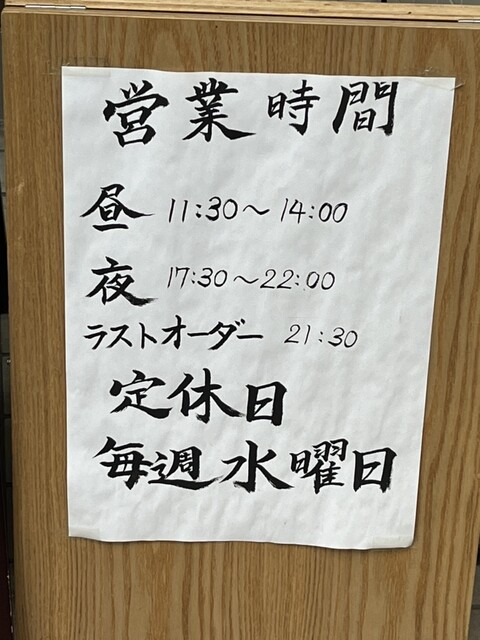 営業時間
昼 11:30～14:00
夜 17:30～22:00
ラストオーダー 21:30
定休日
毎週水曜日